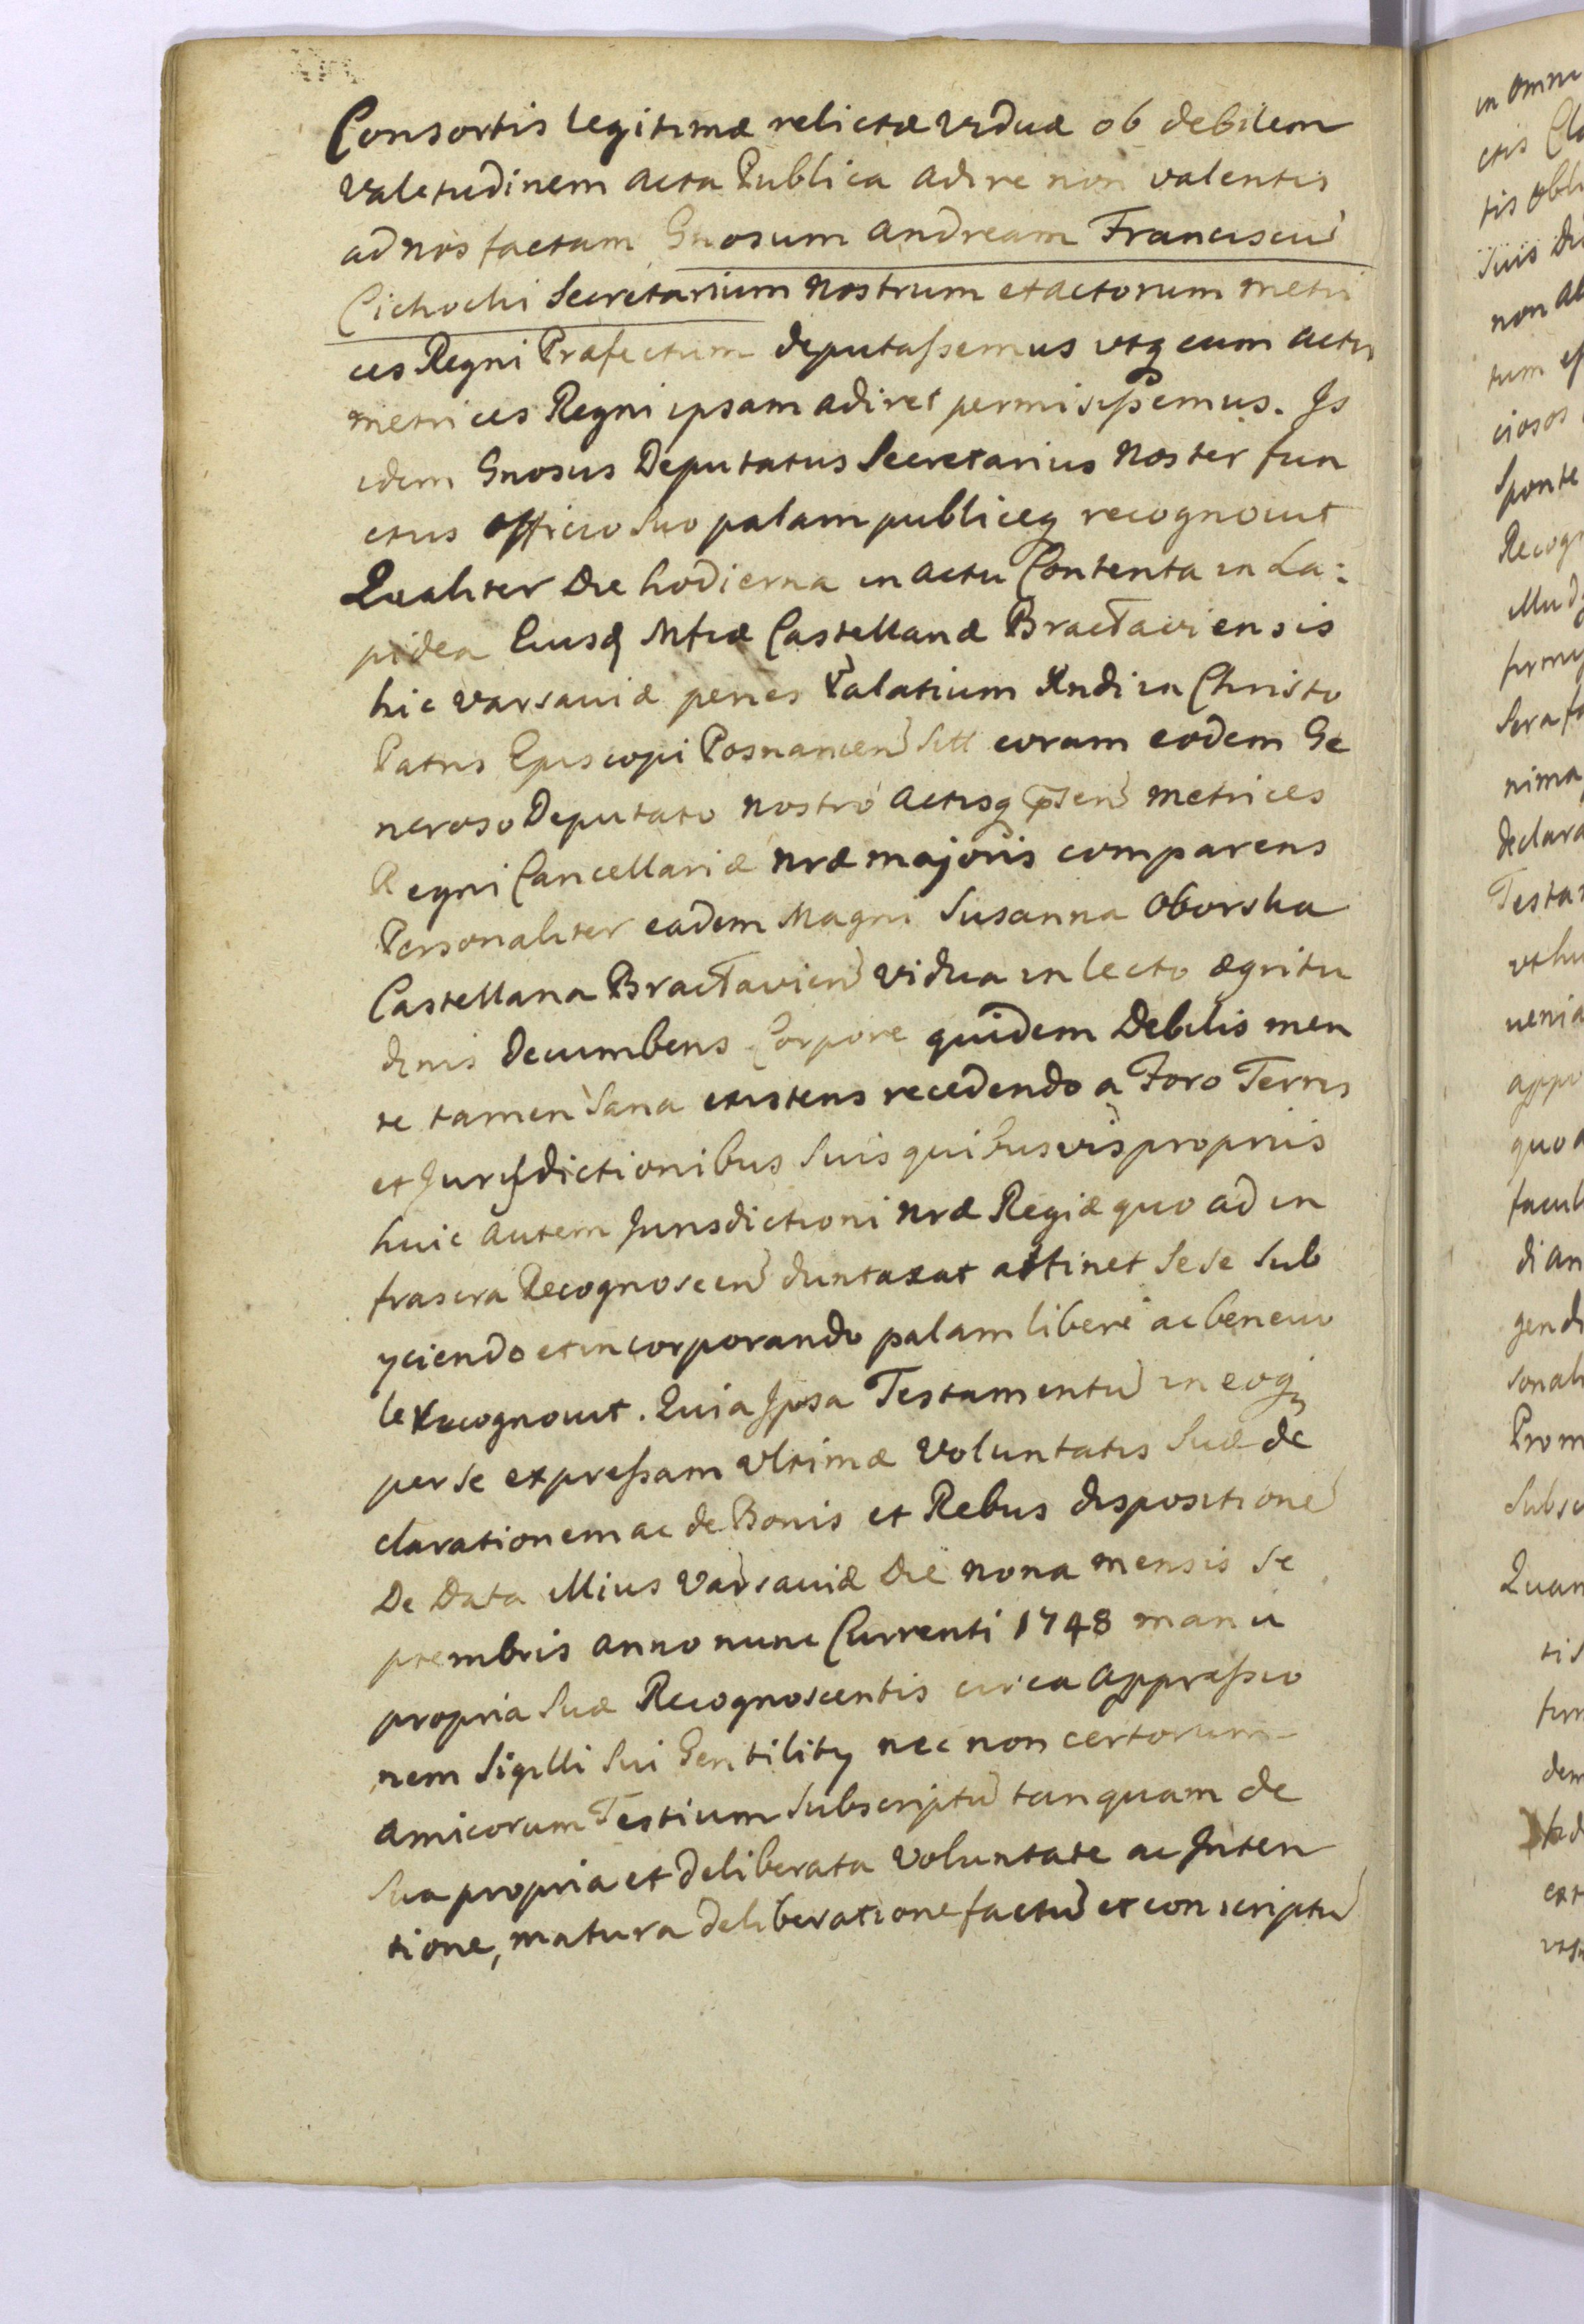 Consortis legitimæ relictæ viduæ ob debilem
valetudinem acta Publica adire non valentis
ad nos factam Gnosum Andream Franciscū
Cichocki Secretarium nostrum et actorum metri
ces Regni Præfectum deputaſsemus utq eum actis
metrices Regni ipsam adiret permisiſsemus. Is
idem Gnosus Deputatus Secretarius noster fun
ctus officio suo palam publiceq recognovit
Qualiter Die hodierna in actu Contenta in La:
pidea Eiusd Mfcæ Castellanæ Bractaviensis
hic Varsaviæ penes Palatium Rndi in Christo
Patris Episcopi Posnanien Sitt coram eodem Ge
neroso Deputato nostro Actisq psen metrices
Regni Cancellariæ nræ majoris comparens
Personaliter eadem Magni Susanna Oborska
Castellana Bractavien vidua in lecto ægritu
dinis Decumbens Corpore quidem Debilis men
te tamen Sana existens recedendo a Foro Terris
et Jurisdictionibus Suis quibusvis propriis
huic autem Jurisdictioni nræ Regiæ quo ad in
frascra Recognoscen duntaxat attinet Sese Sub
yciendo et incorporando palam libere ac benevo
le recognovit. Quia Ipsa Testamentū in eoq
per se expreſsam ultimæ voluntatis Suæ de
clarationem ac de Bonis et Rebus dispositionē
De Data illius Varsaviæ Die nona mensis Se
ptembris anno nunc Currenti 1748 manu
propria Suæ Recognoscentis circa appreſsio
nem Sigilli Sui Gentility nec non certorum
amicorum Testium Subscriptū tanquam de
Sua propria et deliberata voluntate ac Inten
tione, matura deliberatione factū et conscriptū
in omni
ctis
tis obli
Suis
non
tum
ciosos
Sponte
Recog
illud
firmi
nima
declara
Testa
venia
appr
quo
facul
di an
gendi
sonali
Prom
Subsc
Quan
tis